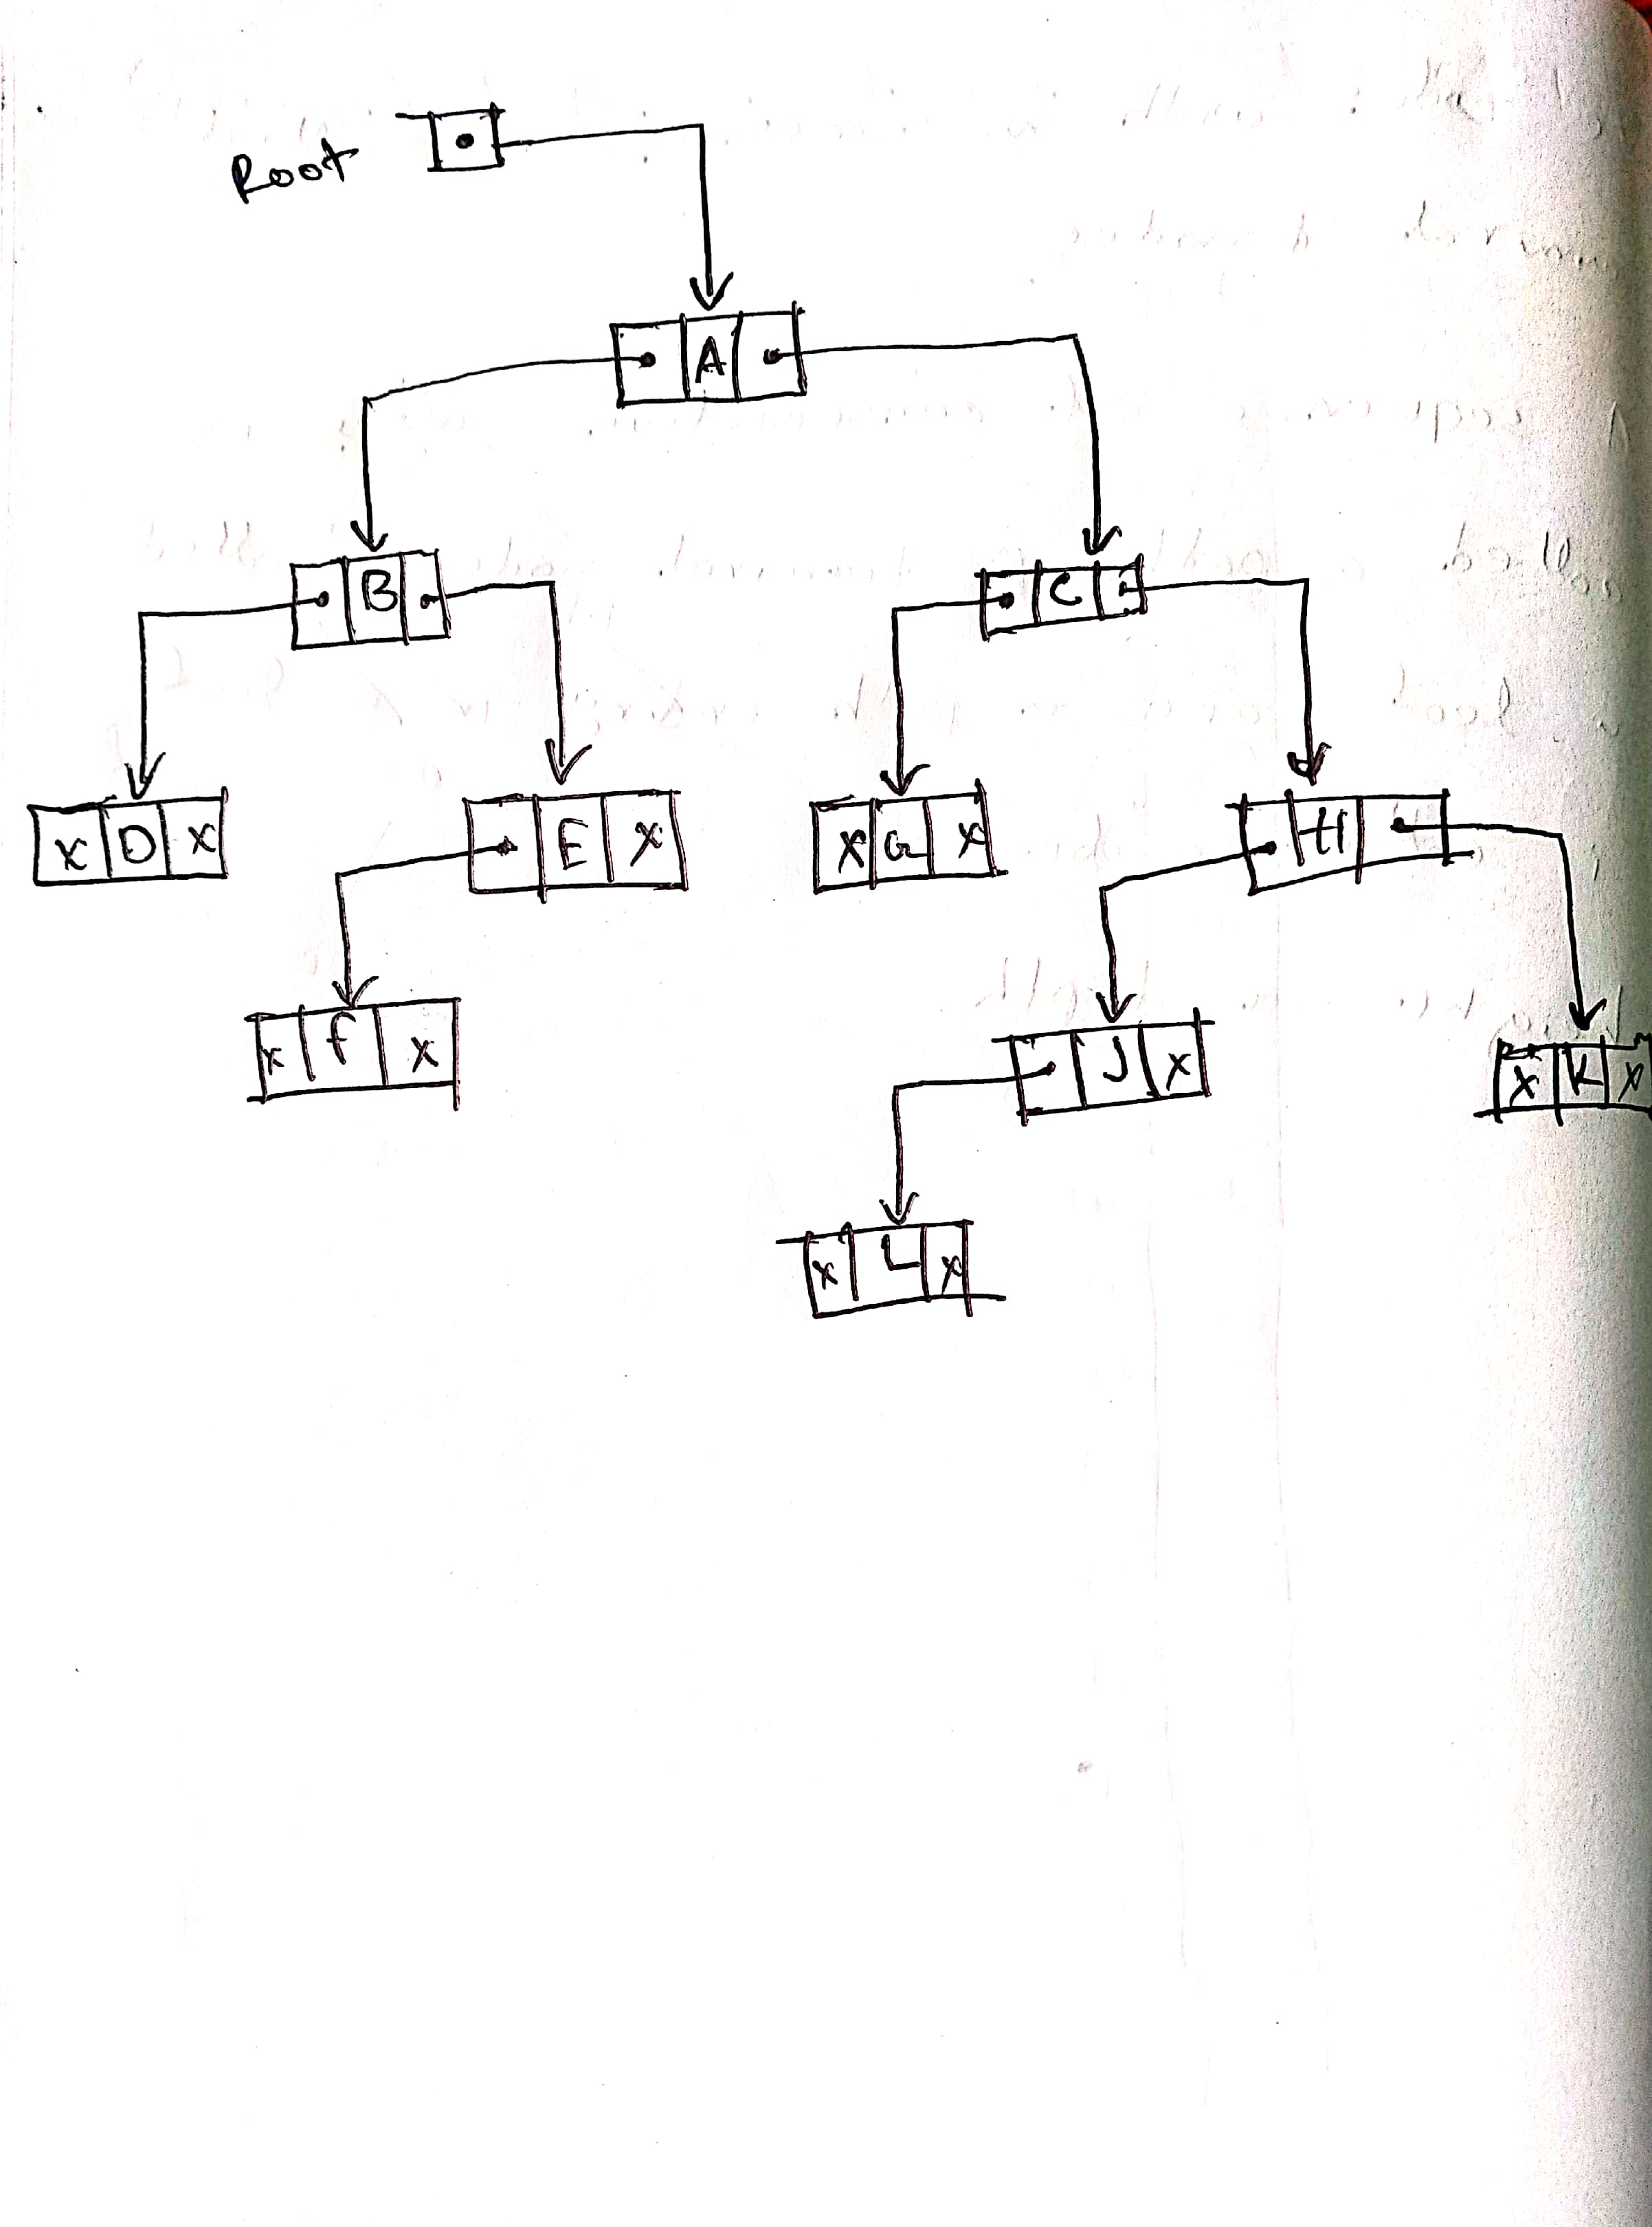 Root
A
B C
x D x E x x G x H
x F x J x x K x
x L x